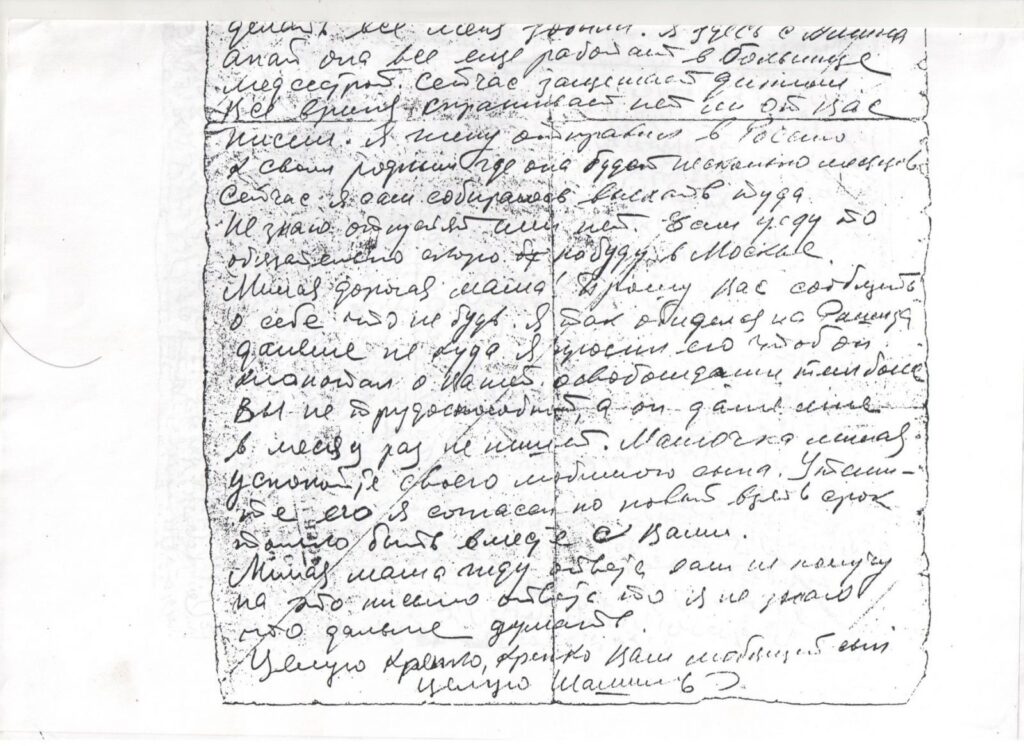 делать все меня забыли. Я здесь с
она все еще работает в больнице
медсестрой. Сейчас защищает диплом
все время спрашивает нет ли от Вас
писем. Я жену отправил в Россию
к своим родным где она будет несколько месяцев
Сейчас я сам собираюсь выехать туда
Не знаю отпустят или нет. Если уеду то
обязательно скоро побуду в Москве.
Милая дорогая мама! Прошу Вас сообщить
о себе что не будь. Я так обиделся на
дальше не куда я просил его чтоб он
хлопотал о Вашей освобождении тем боле
Вы не трудоспособный, а он даже мне
в месяц раз не пишет. Мамочка милая
успокойте своего любимого сына. Утеши-
те его я согласен но новый взять срок
только быть вместе с Вами.
Милая мама жду ответа если не получу
на это письмо ответа то я не знаю
что дальше думать.
Целую крепко, крепко Ваш любящий сын
целую